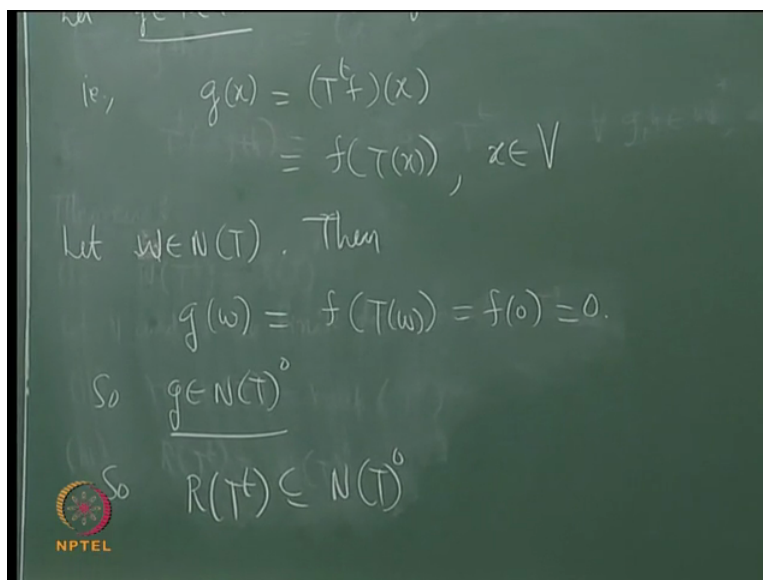 Let g∈
ie, g(x) = (Tᵗf)(x)
= f(T(x)), x∈V
Let w∈N(T). Then
g(w) = f(T(w)) = f(0) = 0.
So g∈N(T)⁰
So R(Tᵗ) ⊆ N(T)⁰
NPTEL